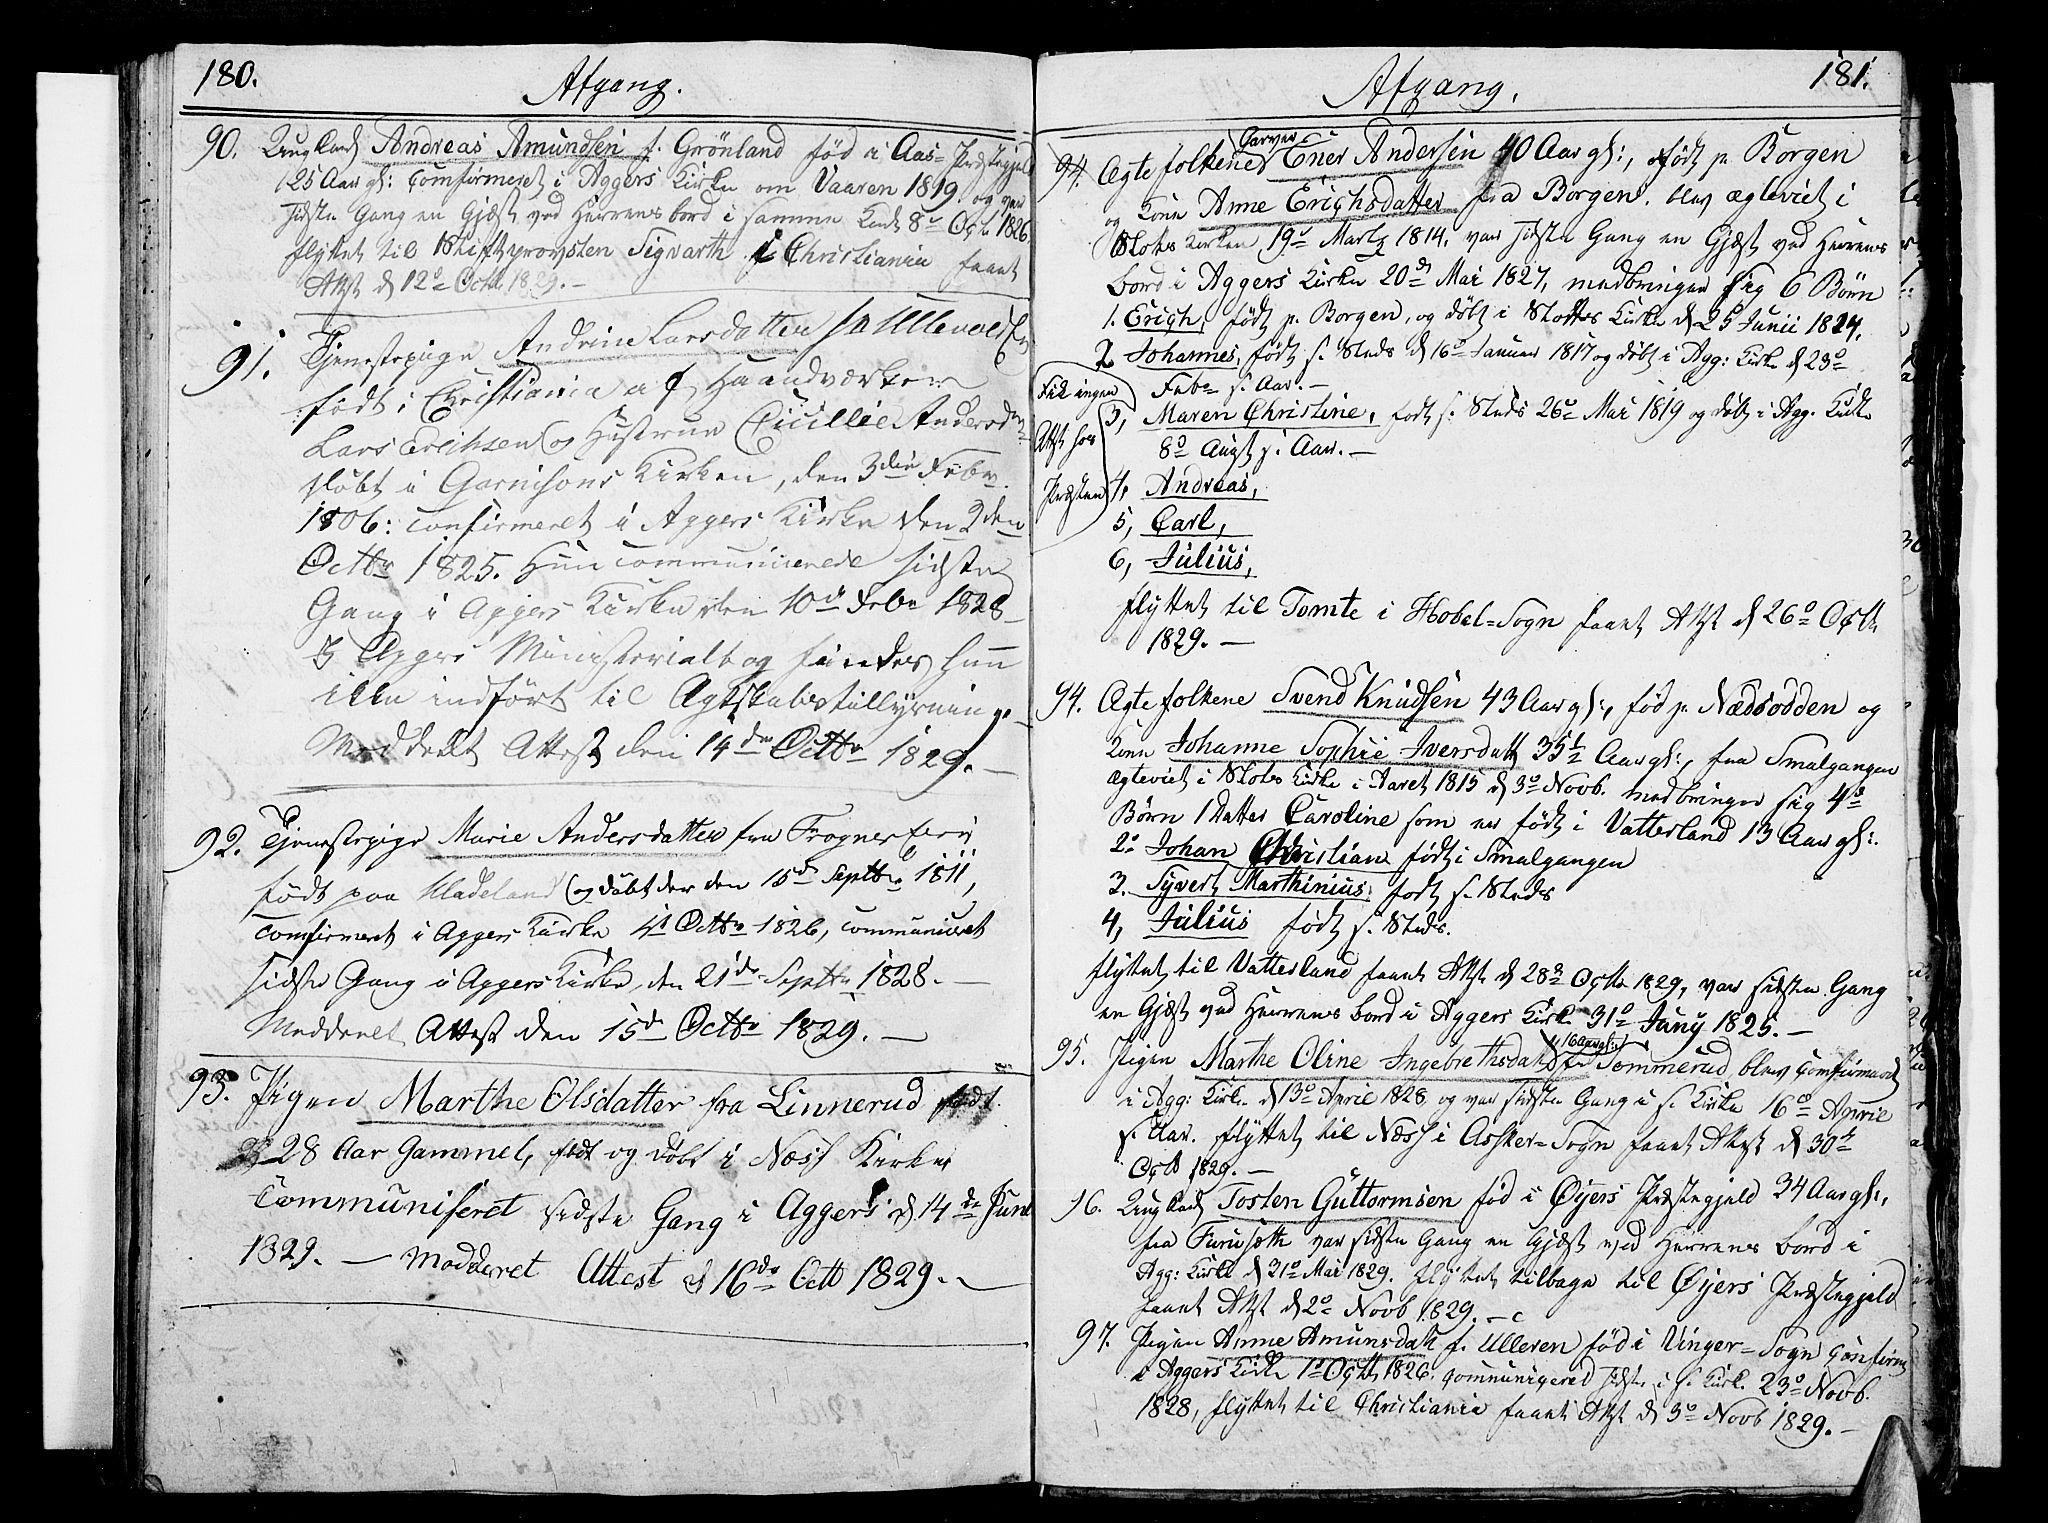 180.
Afgang.
90. Ung Karl Andreas Amundsen f. Grönland fød i Aas-Præstegjeld
25 Aar gl: Comfirmeret i Aggers Kirke om Vaaren 1819 og var
sidste Gang en Gjæst ved Herrens bord i samme Kirk 8de Oct. 1826
flyttet til Stiftsprovsten Sigvarth i Christiania faaet
Attst d 12te Octb 1829. —
91. Tjenestepige Andrine Larsdatter fra Ullevold Er
født i Christiania af Haandværker
Lars Erichsen og Hustrue Cicillie Andersd
døbt i Garnisons Kirken, den 3die Febr.
1806: confirmeret i Aggers Kirke den 2den
Octbr 1825. Hun communicerede sidste
Gang i Aggers Kirke den 10de Febr 1828 —
I Aggers Ministerialbog findes hun
ikke indført til Ægteskabstillysning. —
Meddelt Attest den 14de Octbr 1829. —
92. Tjenestepige Marie Andersdatter fra Frogner Er
født paa Hadeland og døbt der den 15de Septbr 1811,
comfirmeret i Aggers Kirke 1 Octbr 1826, communiceret
sidste Gang i Aggers Kirke, den 21de Septbr 1828. —
Medderet Attest den 15de Octbr 1829. —
93. Pigen Marthe Olsdatter fra Linnerud født
28 Aar Gammel, født og døbt i Næss Kirke
Communiseret sidste Gang i Aggers d 14de Juni
1829. — Medderet Attest d 16de Octb 1829. —
181.
Afgang.
94. Ægtefolkene Garver Ener Andersen 40 Aar gl:, født p. Borgen
og Kone Anne Erichsdatter fra Borgen. blev ægteviet i
Slots Kirken 19de Martz 1814. var sidste Gang en Gjæst ved Herrens
bord i Aggers Kirke 20de Mai 1827, medbringer sig 6 Børn
1. Erich, født p. Borgen, og døbt i Slottes Kirke d 25 Junii 1814.
2. Johannes, født s. Steds d 16de Januar 1817 og døbt i Agg: Kirke d 23de
Febr s. Aar. —
Fik ingen
Attst hos
Præsten
3, Maren Christine, født s. Steds 26de Mai 1819 og døbt i Agg. Kirke
8de Augst s. Aar. —
4, Andreas,
5, Carl,
6, Julius,
flyttet til Tomte i Hobel-Sogn faaet Attst d 26de Octb
1829. —
94. Ægtefolkene Svend Knudsen 43 Aar gl:, fød p. Nædsodden og
Kone Johanne Sophie Iversdatt 35½ Aar gl:, fra Smalgangen
ægteviet i Slots Kirke i Aaret 1815 d 3de Novb. medbringer sig 4de
Børn 1 Datter Caroline som er født i Vatterland 13 Aar gl:
2. Johan Christian født i Smalgangen
3. Syvert Marthinius, født s. Steds
4, Julius født s. Steds.
flyttet til Vatterland faaet Attst d 28de Octb 1829, var sidste Gang
en Gjæst ved Herrens bord i Aggers Kirke 31de Juny 1825. —
95. Pigen Marthe Oline Ingebrethsdatt 16 Aar gl: fra Sommerud blev comfirmeret
i Agg: Kirke d 13de April 1828 og var sidste Gang i s. Kirke 16de April
s. Aar. flyttet til Næss i Asker-Sogn faaet Attst d 30te
Octb 1829. —
96. Ung Karl Tosten Guttormsen fød i Øyers Præstegjeld 34 Aar gl:,
fra Furusæth var sidste Gang en Gjæst ved Herrens bord i
Agg: Kirke d 21de Mai 1829. flyttet tilbage til Øyers Præstegjeld
faaet Attst d 2de Novb 1829. —
97. Pigen Anne Amunsdatt f. Ulleren fød i Vinger-Sogn Confirm
i Aggers Kirke 1te Octb 1826. communiceret sidste i s. Kirk. 23de Novb.
1828, flyttet til Christiania faaet Attst d 3de Novb 1829. —